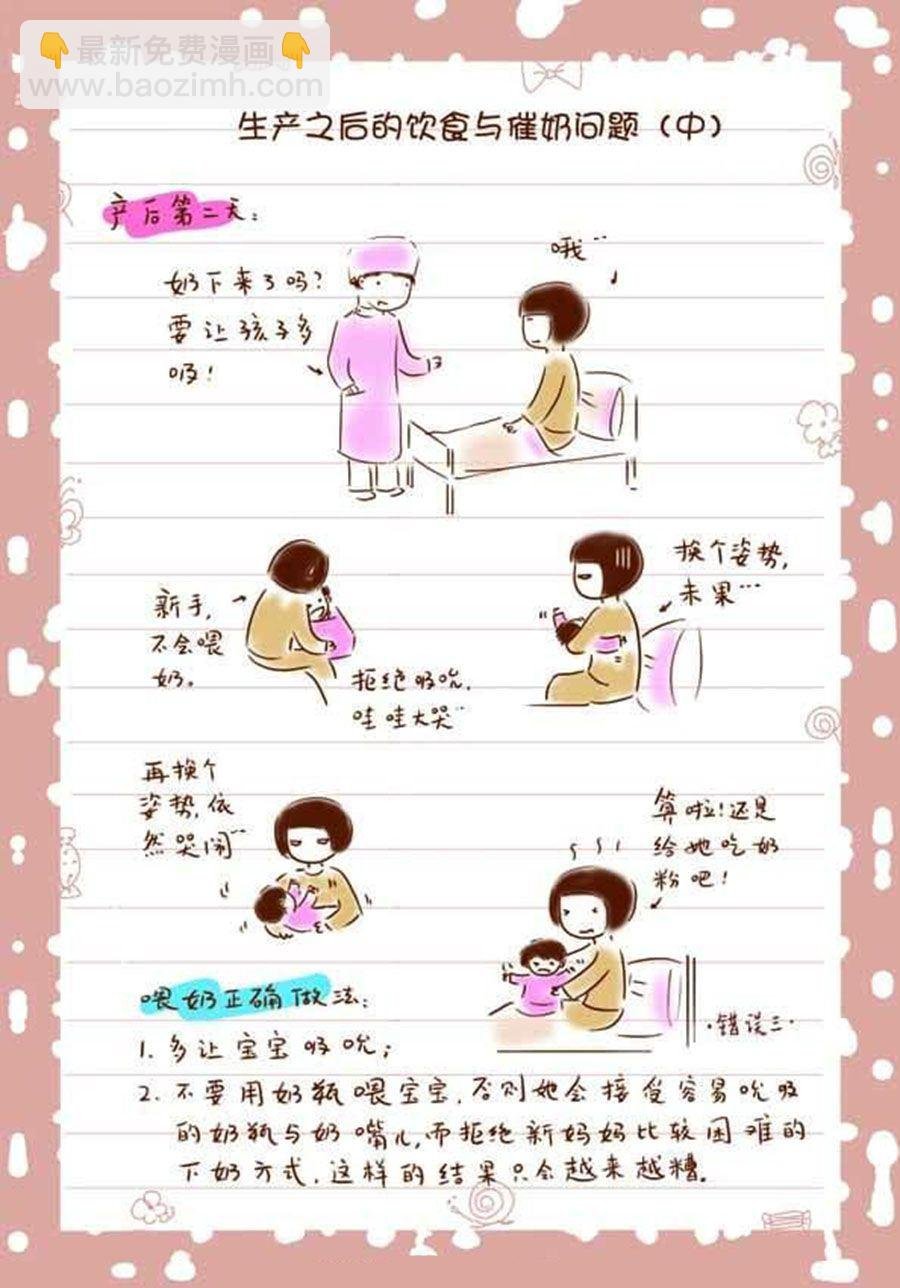 👇最新免费漫画👇
www.baozimh.com
生产之后的饮食与催奶问题（中）
产后第二天：
哦
奶下来了吗？
要让孩子多
吸！
新手，
不会喂
奶。
拒绝吸吮，
哇哇大哭
换个姿势，
未果…
再换个
姿势，依
然哭闹
算啦！还是
给她吃奶
粉吧！
·错误三·
喂奶正确做法：
1. 多让宝宝吸吮；
2. 不要用奶瓶喂宝宝，否则她会接受容易吮吸
的奶瓶与奶嘴儿，而拒绝新妈妈比较困难的
下奶方式，这样的结果只会越来越糟。